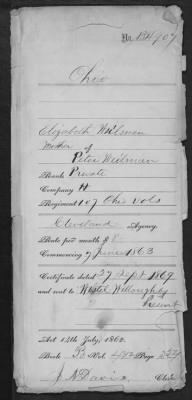 No. 134907
Ohio
Elizabeth Wellman
Mother of
Peter Wellman
Rank Private
Company H
Regiment 107 Ohio Vols
Cleveland Agency.
Rate per month $ 8
Commencing 9 June 1863
Certificate dated 27 Sept 1869
and sent to Westel Willoughby
Present
Act 14th July, 1862.
Book Vol. Page
J N Davis Clerk